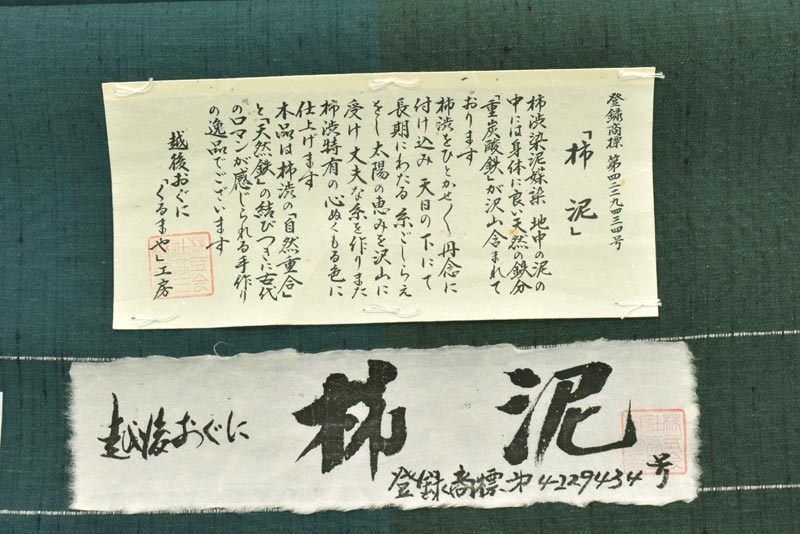 登録商標 第四二二九四三四号
「柿泥」
柿渋染泥媒染 地中の泥の
中には身体に良い天然の鉄分
「重炭酸鉄」が沢山含まれて
おります
柿渋をひとかせ〱 丹念に
付け込み 天日の下にて
長期にわたる 糸ごしらえ
をし 太陽の恵みを沢山に
受け 丈夫な糸を作りまた
柿渋特有の心ぬくもる色に
仕上げます
本品は柿渋の「自然重合」
と「天然鉄」の結びつきに古代
のロマンが感じられる手作り
の逸品でございます
越後おぐに
「くるまや」工房
越後おぐに
柿泥
登録商標 第4229434号